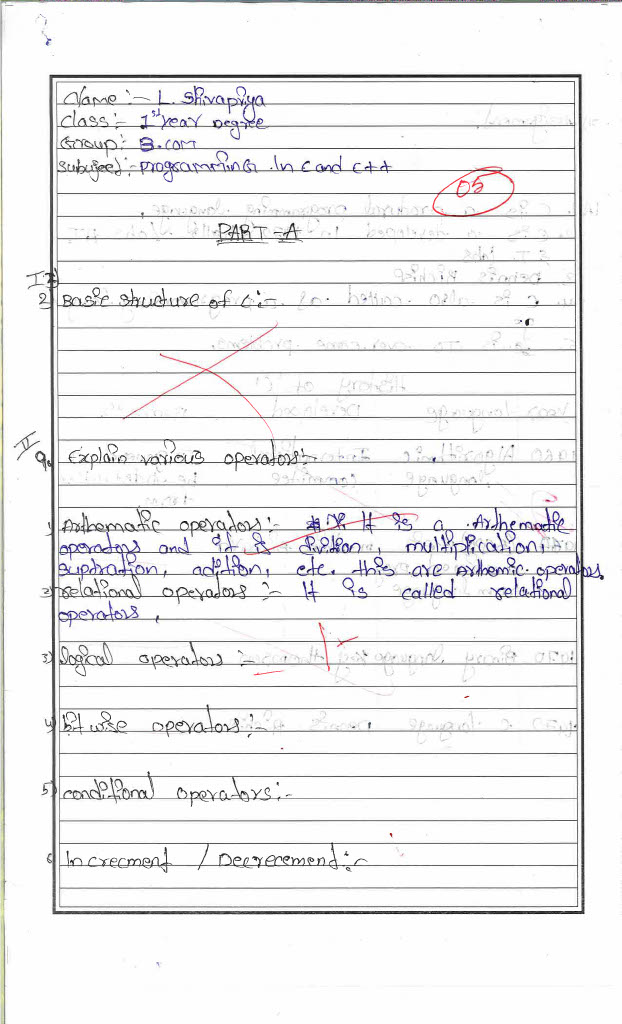 Name :- L. Shivapriya
Class :- 1st Year Degree
Group : B.com
Subject :- programming In C and C++
05
PART-A
I
2 Basic structure of C :-
II
9. Explain various operators :-
1) Arthematic operators :- It is a Arthematic
operators and it is divition, multiplication,
suptration, adition, etc. this are Arthemic operators.
2) relational operators :- It is called relational
operators,
3) logical operators :-
4) bit wise operators :-
5) conditional operators :-
6 Increcment / Decrecement :-